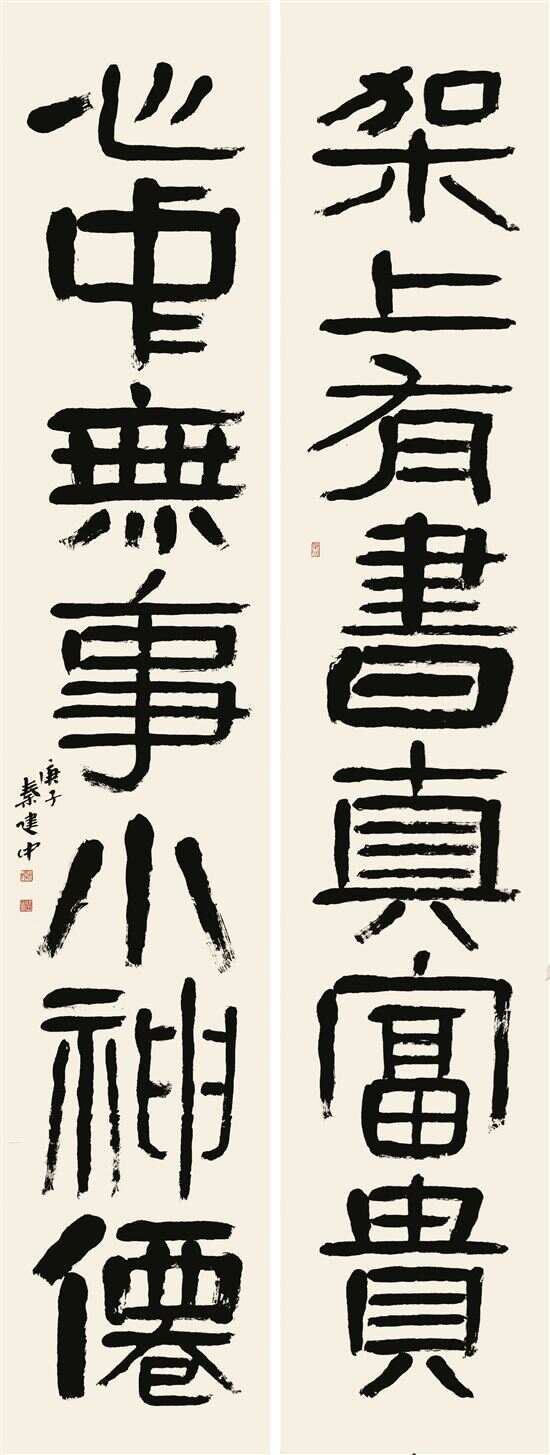 架上有書真富貴
心中無事小神僊
庚子
秦建中